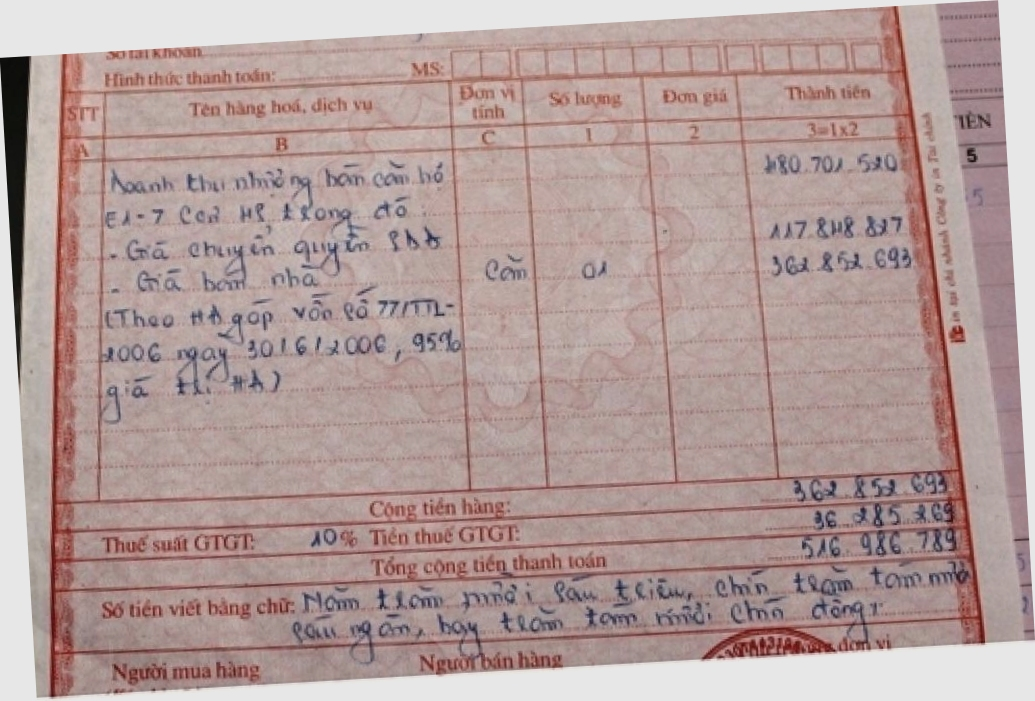 Số tài khoản
Hình thức thanh toán: MS:
STT Tên hàng hoá, dịch vụ Đơn vị tính Số lượng Đơn giá Thành tiền
A B C 1 2 3=1x2
Doanh thu nhượng bán căn hộ 480.701.520
E1-7 trong đó:
- Giá chuyển quyền SDĐ 117.848.827
- Giá bán nhà Căn 01 362.852.693
(Theo HĐ góp vốn số 77/TTL-
2006 ngày 30/6/2006, 95%
giá trị HĐ)
Cộng tiền hàng: 362.852.693
Thuế suất GTGT: 10% Tiền thuế GTGT: 36.285.269
Tổng cộng tiền thanh toán 516.986.789
Số tiền viết bằng chữ: Năm trăm mười sáu triệu, chín trăm tám mươi
sáu ngàn, bảy trăm tám mươi chín đồng
Người mua hàng Người bán hàng đơn vị
in tại chi nhánh Công ty in Tài chính
IỀN
5